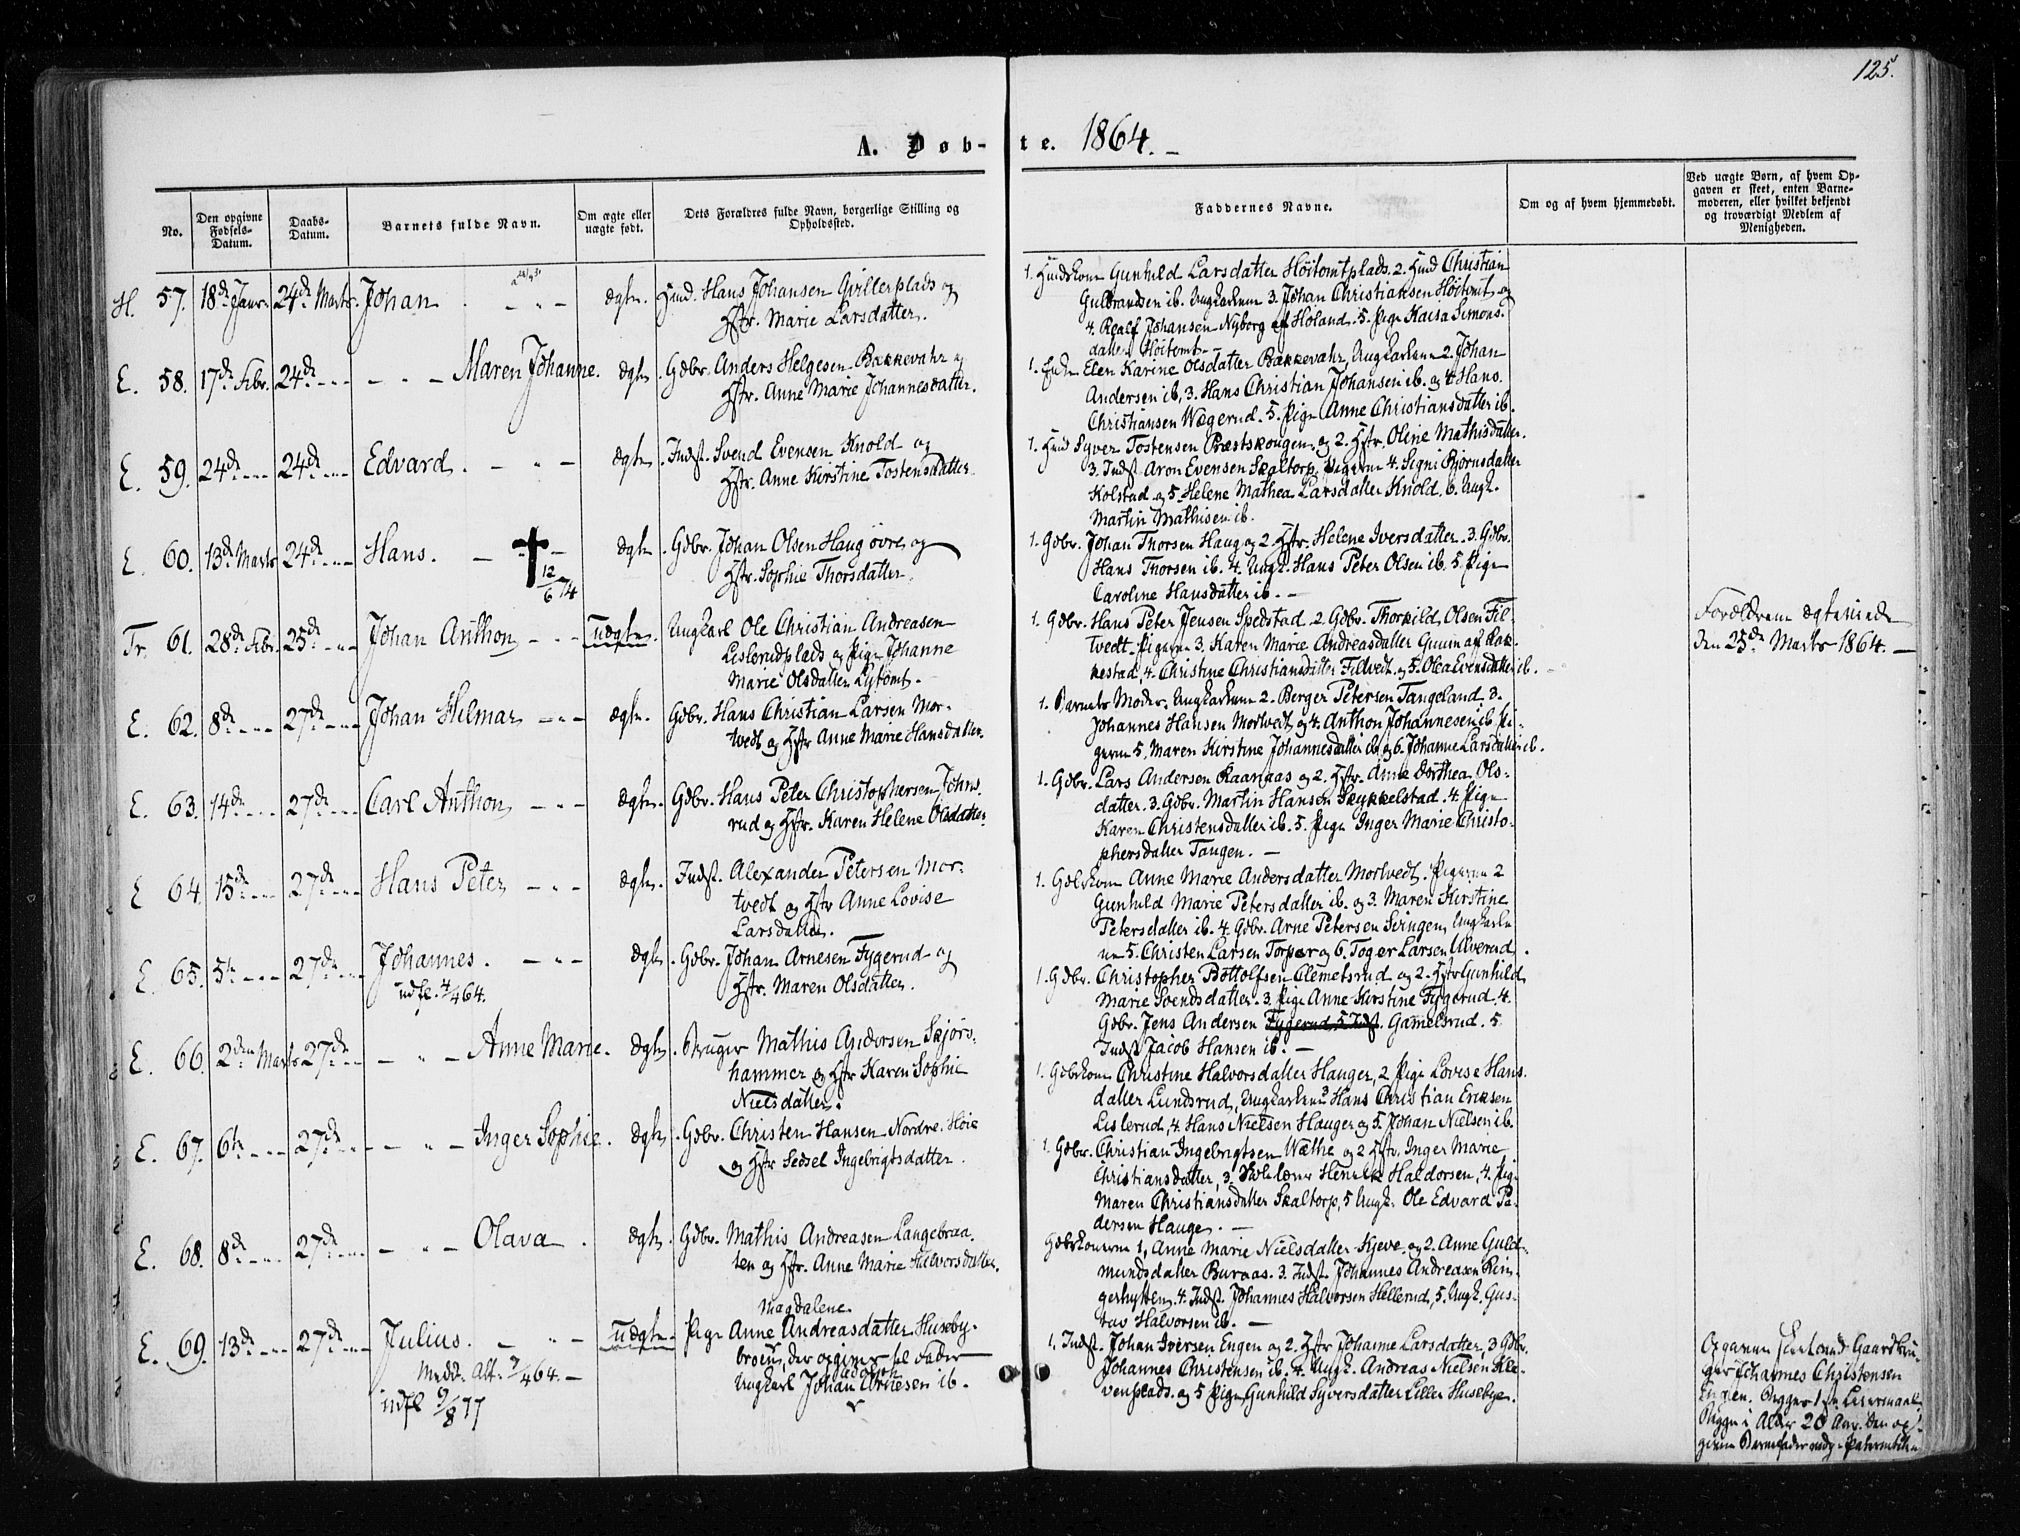 125.
A. Døb-
te. 1864.
No.
Den opgivne
Fødsels-
Datum.
Daabs-
Datum.
Barnets fulde Navn.
Om ægte eller
uægte født.
Dets Forældres fulde Navn, borgerlige Stilling og
Opholdssted.
Faddernes Navne.
Om og af hvem hjemmedøbt.
Ved uægte Børn, af hvem Op-
gaven er skeet, enten Barne-
moderen, eller hvilket bekjendt
og troværdigt Medlem af
Menigheden.
H. 57. 18de Janr. 24de Marts. Johan ægte. Husmd. Hans Johansen Grillerplads og
Hstr. Marie Larsdatter.
1. Husmdskone Gunhild Larsdatter Höitomtplads. 2. Husmd Christian
Gulbrandsen ib. Ungkarlene 3. Johan Christiansen Höitomt og
4. Roalf Johansen Nyborg af Höland. 5. Pige Kaisa Simons-
datter Höitomt.
E. 58. 17de Febr. 24de Maren Johanne. ægte Gdbr. Anders Helgesen Bækkevahr og
Hstr. Anne Marie Johannesdatter.
1. Enke Elen Karine Olsdatter Bækkevahr, Ungkarlene 2. Johan
Andersen ib, 3. Hans Christian Johansen ib. og 4. Hans
Christiansen Wægerud. 5. Pige Anne Christiansdatter ib.
E. 59. 24de 24de Edvard. ægte Indst. Svend Evensen Knold og
Hstr. Anne Kirstine Tostensdatter
1. Husmd Syver Tostensen Præstskougen og 2. Hstr. Oline Mathisdatter.
3. Indst. Aron Evensen Skaltorp, Pigerne 4. Signi Bjørnsdatter
Kolstad og 5. Helene Mathea Larsdatter Knold. 6. Ungk.
Martin Mathisen ib.
E. 60. 13de Marts 24de Hans. ægte Gdbr. Johan Olsen Haug övre og
12/6 74
Hstr. Sophie Thorsdatter.
1. Gdbr. Johan Thorsen Haug og 2. Hstr. Helene Iversdatter. 3. Gdbr.
Hans Thorsen ib. 4. Ungk. Hans Peter Olsen ib. 5. Pige
Caroline Hansdatter ib.
Tr. 61. 28de Febr. 25de Johan Anthon uægte. Ungkarl Ole Christian Andreasen
Lislerudplads og Pige Johanne
Marie Olsdatter Lytomt.
1. Gdbr. Hans Peter Jensen Spedstad. 2. Gdbr. Thorkild Olsen Fil-
tvedt. Pigerne 3. Karen Marie Andreasdatter Guuin af Rak-
kestad, 4. Christine Christiansdatter Fildvedt og 5. Olea Evensdatter ib.
Forældrene ægteviede
den 25de Marts 1864.
E. 62. 8de 27de Johan Hilmar ægte. Gdbr. Hans Christian Larsen Mor-
tvedt og Hstr Anne Marie Hansdatter.
1. Barnets Moder. Ungkarlene 2. Berger Petersen Tangeland. 3.
Johannes Hansen Mortvedt og 4. Anthon Johannesen ib. Pi-
gerne 5. Maren Kirstine Johannesdatter ib. og 6. Johanne Larsdatter ib.
E. 63. 14de 27de Carl Anthon ægte. Gdbr. Hans Peter Christophersen Johns-
rud og Hstr. Karen Helene Olsdatter.
1. Gdbr. Lars Andersen Raanaas og 2. Hstr. Anne Dorthea Ols-
datter. 3. Gdbr. Martin Hansen Skykkelstad. 4. Pige
Karen Christensdatter ib. 5. Pige Inger Marie Christo-
phersdatter Tangen.
E 64. 15de 27de Hans Peter ægte. Indst. Alexander Petersen Mor-
tvedt og Hstr Anne Lovise
Larsdatter.
1. Gdbskone Anne Marie Andersdatter Mortvedt. Pigerne 2
Gunhild Marie Petersdatter ib. og 3. Maren Kirstine
Petersdatter ib. 4. Gdbr. Arne Petersen Svingen, Ungkarle
ne 5. Christen Larsen Torper og 6. Toger Larsen Ulverud.
E. 65. 5te 27de Johannes. ægte. Gdbr. Johan Arnesen Fygerud og
udfl. 4/4 64.
Hstr. Maren Olsdatter.
1. Gdbr. Christopher Bottolfsen Clemetsrud og 2. Hstr Gunhild
Marie Svendsdatter. 3. Pige Anne Kirstine Fygerud. 4.
Gdbr. Jens Andersen Fygerud 5 Indst. Gamelsrud. 5.
Indst Jacob Hansen ib.
E. 66. 2den Marts 27de Anne Marie. ægte. Bruger Mathis Andersen Skjørs-
hammer og Hstr Karen Sophie
Nielsdatter.
1. Gdbrkone Christine Halvorsdatter Hauger, 2 Pige Lovise Hans-
datter Lundsrud, Ungkarlene 3 Hans Christian Eriksen
Lislerud, 4. Hans Nielsen Hauger og 5. Johan Nielsen ib.
E. 67. 6te 27de Inger Sophie. ægte. Gdbr. Christen Hansen Nordre Höie
og Hstr Sedsel Ingebrigtsdatter.
1. Gdbr. Christian Ingebrigtsen Wæthe og 2 Hstr. Inger Marie
Christiansdatter, 3. Skolelærer Henrik Haldorsen, 4. Pige
Maren Christiansdatter Skaltorp, 5 Ungk. Ole Edvard Pe-
dersen Hauge.
E. 68. 8de 27de Olava. ægte. Gdbr. Mathis Andreasen Langebraa-
ten og Hstr. Anne Marie Halvorsdatter.
Gdbrkonerne 1. Anne Marie Nielsdatter Kjeve og 2. Anne Guld-
mundsdatter Buraas. 3. Indst. Johannes Andreasen Rin-
gerhytten. 4. Indst. Johannes Halvorsen Hellerud, 5. Ungk. Gus-
tav Halvorsen ib.
Magdalene
E. 69. 13de 27de Julius. uægte. Pige Anne Andreasdatter Huseby-
broen, der opgiver til Fader
Medd. Att. 7/4 64.
Ungkarl Johan Arnesen ib.
indfl 9/8 77
1. Indst. Johan Iversen Engen og 2. Hstr Johanne Larsdatter, 3 Gdbr.
Johannes Christensen ib. 4. Ungk. Andreas Nielsen Kle-
venplads. og 5 Pige Gunhild Syversdatter Lille Husebye.
Opgaven skeet ved Gaardbru-
ger Johannes Christensen
Engen. Begges 1ste Leiermaal.
Begge i Alder 20 Aar. Den op-
givne Barnefader